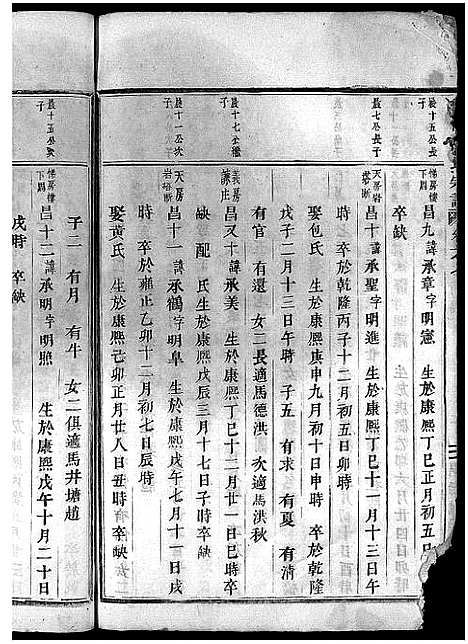 晨十五公長子
悌房樓下周
昌九諱承章字明憲 生於康熙丁巳正月初五日
卒缺
晨七公長子
天房岩塔斷
昌十諱承聖字明進 生於康熙丁巳十一月十三日午
時 卒於乾隆丙子十二月初五日卯時
娶包氏 生於康熙庚申九月初十日申時 卒於乾隆
戊子二月十三日午時 子五 有夏 有清
有官 有還 女二長適馬德洪 次適馬洪秋
晨十七公繼子
義房諫庄
昌又十諱承美 生於康熙丁巳十二月廿一日巳時卒
缺 配 氏生於康熙戊辰三月十七日子時卒缺
晨十一公次子
天房岩塔斷
昌十一諱承鶴字明阜 生於康熙戊午七月十一日戌
時 卒於雍正乙卯十二月初七日辰時
娶黄氏 生於康熙己卯正月廿八日丑時 卒缺
子二 有月 有牛 女二俱適馬井塘趙
晨十五公次子
悌房樓下周
昌十二諱承明字明照 生於康熙戊午十月二十日
戌時 卒缺